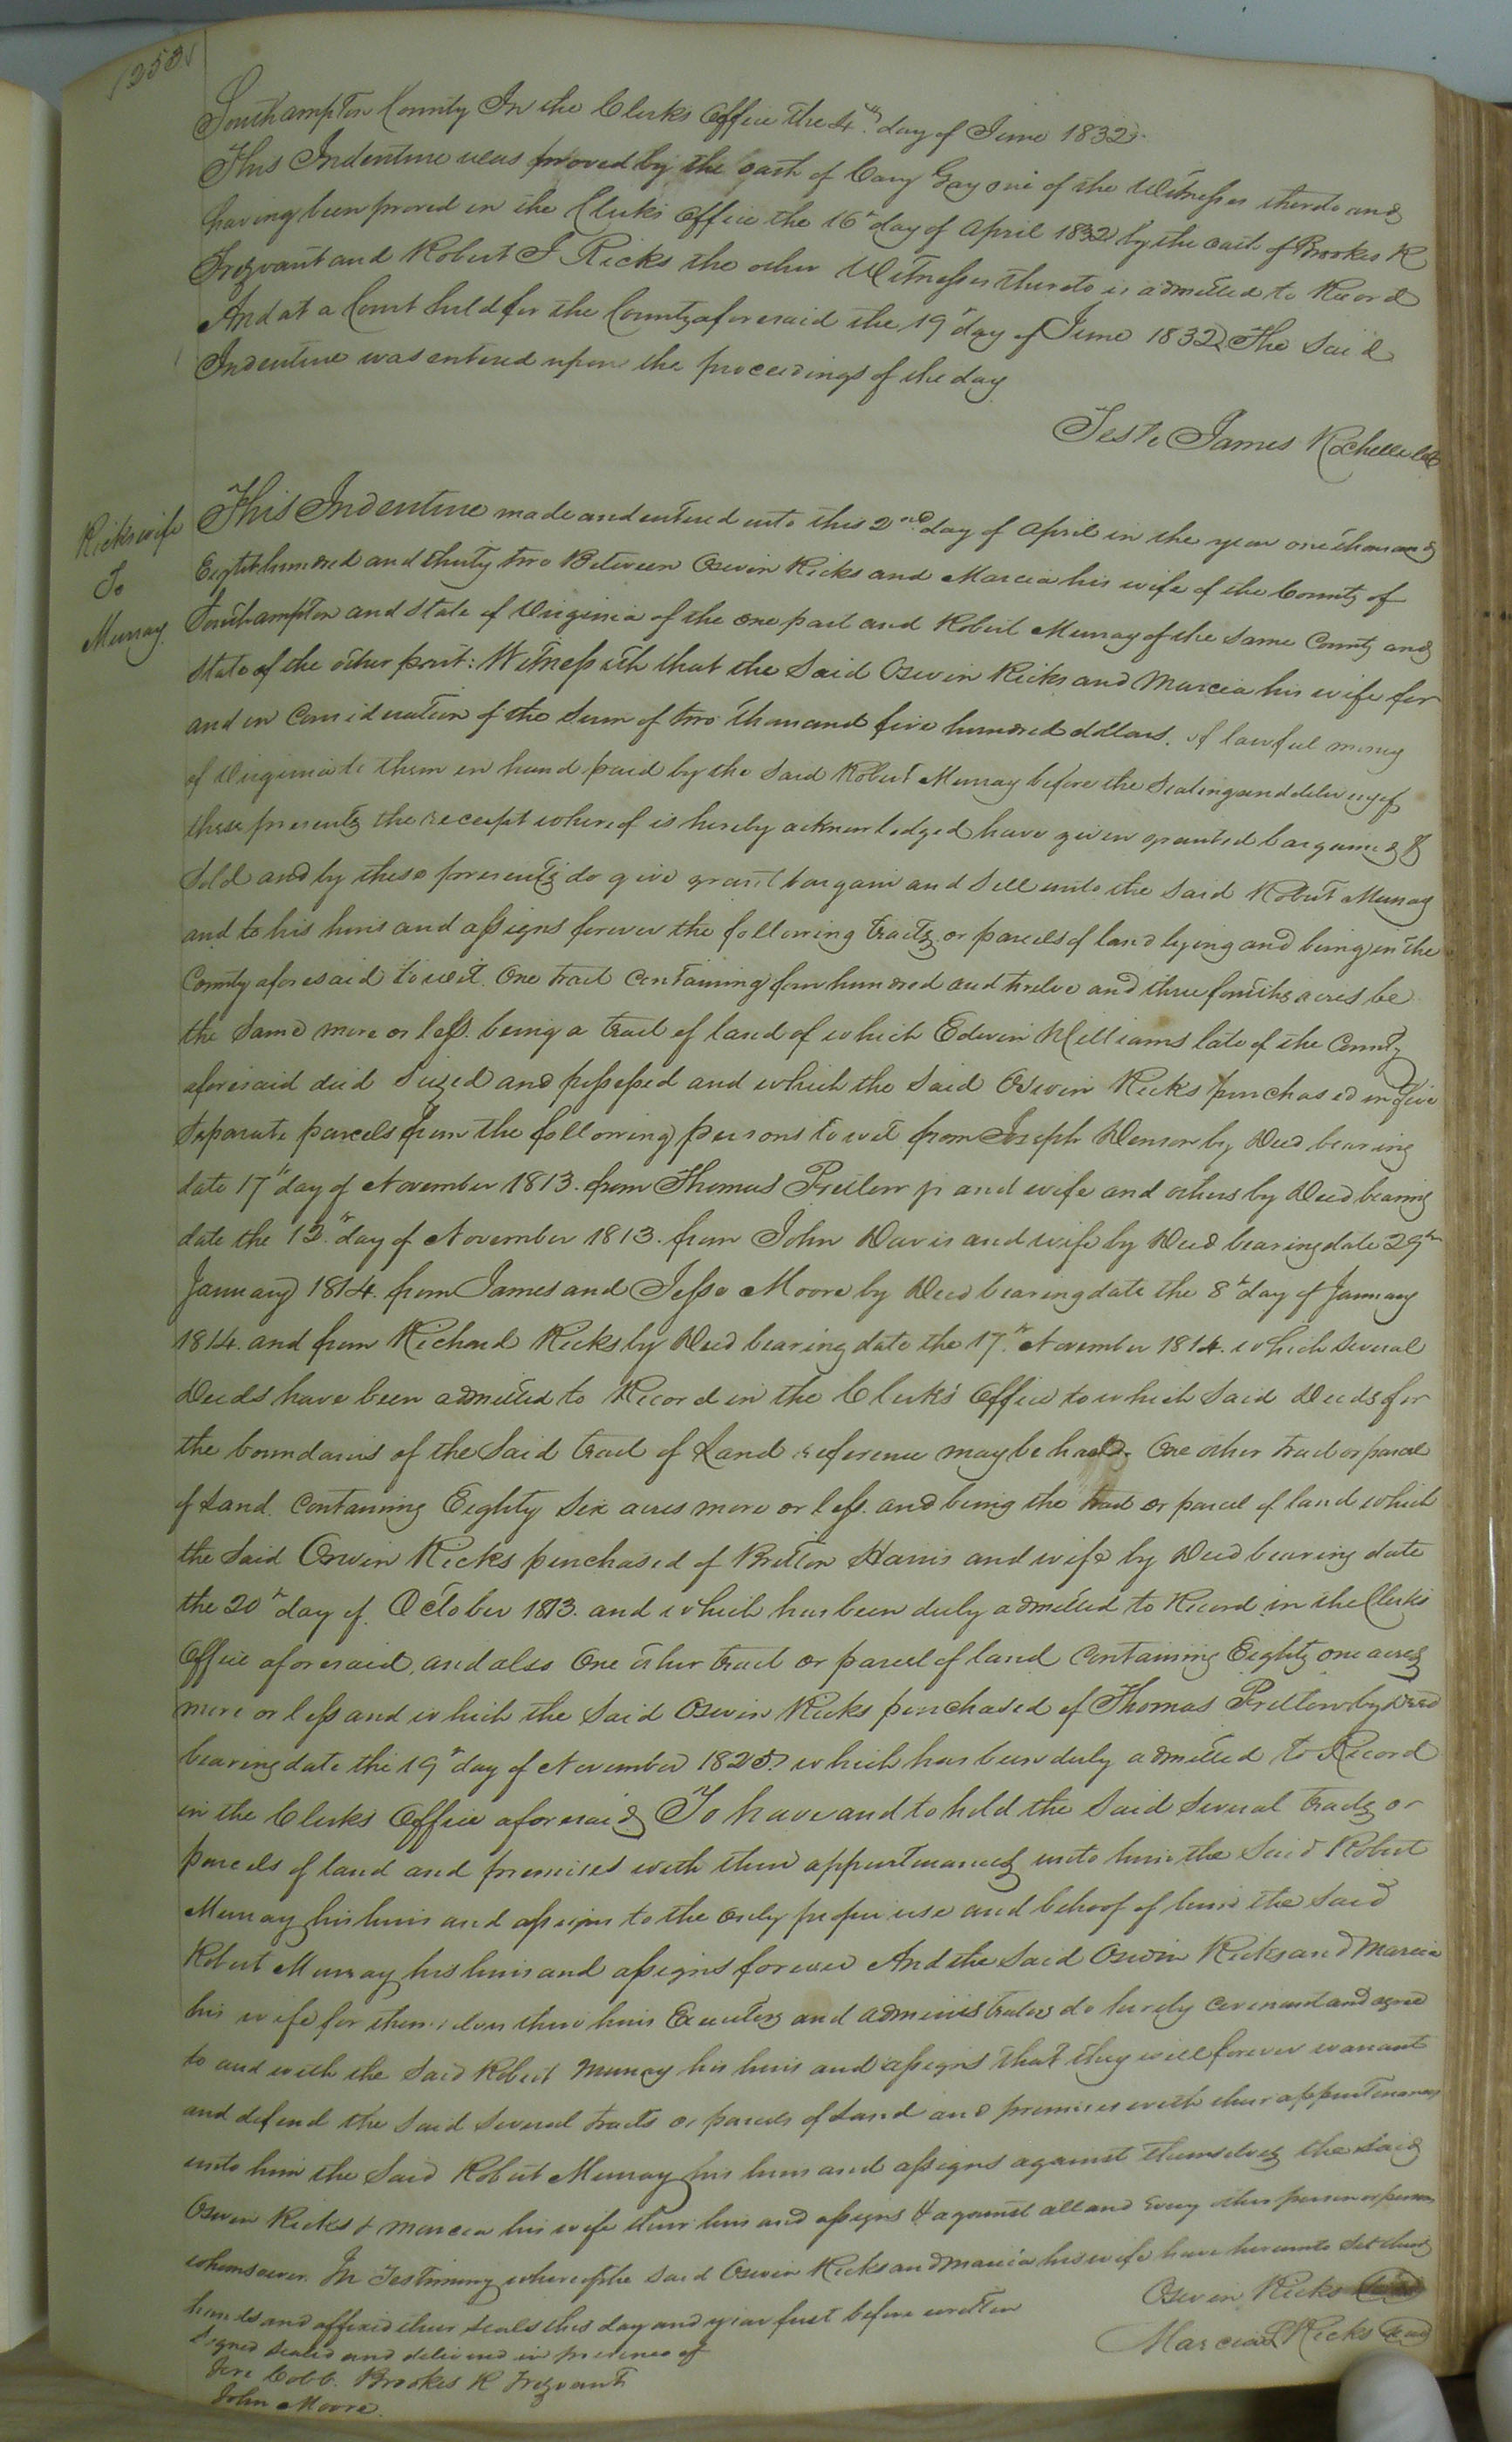 253
Southampton County In the Clerks Office the 4th day of June 1832.
This Indenture was proved by the oath of Cary Gay one of the Witnesses thereto and
having been proved in the Clerks Office the 16th day of April 1832 by the oath of Brookes R
Trezvant and Robert J Ricks the other Witnesses thereto is admitted to Record
And at a Court held for the County aforesaid the 19th day of June 1832 The said
Indenture was entered upon the proceedings of the day
Teste James Rochelle clk
Ricks & wife
To
Murray
This Indenture made and entered into this 2nd day of April in the year one thousand
Eight hundred and thirty two Between Oswin Ricks and Marcia his wife of the County of
Southampton and state of Virginia of the one part and Robert Murray of the same County and
state of the other part: Witnesseth that the said Oswin Ricks and Marcia his wife for
and in Consideration of the sum of two thousand five hundred dollars. of lawful money
of Virginia to them in hand paid by the said Robert Murray before the sealing and delivery of
these presents the receipt whereof is hereby acknowledged have given granted bargained &
sold and by these presents do give grant bargain and sell unto the said Robert Murray
and to his heirs and assigns forever the following tracts or parcels of land lying and being in the
County aforesaid to wit. One tract containing four hundred and twelve and three fourths acres be
the same more or less. being a tract of land of which Edwin Williams late of the County
aforesaid died seized and possessed and which the said Oswin Ricks purchased in five
separate parcels from the following persons to wit from Joseph Denson by Deed bearing
date 17th day of November 1813. from Thomas Pretlow jr and wife and others by Deed bearing
date the 13th day of November 1813. from John Davis and wife by Deed bearing date 29th
January 1814. from James and Jesse Moore by Deed bearing date the 8th day of January
1814. and from Richard Ricks by Deed bearing date the 17th November 1814. which several
Deeds have been admitted to Record in the Clerk's Office to which said Deeds for
the boundaries of the said tract of Land reference may be had. One other tract or parcel
of Land. Containing Eighty six acres more or less. and being the tract or parcel of land which
the said Oswin Ricks purchased of Britton Harris and wife by Deed bearing date
the 20th day of October 1813. and which has been duly admitted to Record in the Clerks
Office aforesaid, and also One other tract or parcel of land Containing Eighty one acres
more or less and which the said Oswin Ricks purchased of Thomas Pretlow by Deed
bearing date the 19th day of November 1825. which has been duly admitted to Record
in the Clerks Office aforesaid To have and to hold the said several tracts or
parcels of land and premises with their appurtenances unto him the said Robert
Murray his heirs and assigns to the only proper use and behoof of him the said
Robert Murray his heirs and assigns forever And the said Oswin Ricks and Marcia
his wife for themselves their heirs Executors and administrators do hereby covenant and agree
to and with the said Robert Murray his heirs and assigns that they will forever warrant
and defend the said several tracts or parcels of Land and premises with their appurtenances
unto him the said Robert Murray his heirs and assigns against themselves the said
Oswin Ricks & Marcia his wife their heirs and assigns & against all and every other person or persons
whomsoever. In Testimony whereof the said Oswin Ricks and Marcia his wife have hereunto set their
hands and affixed their seals this day and year first before written
Oswin Ricks seal
Signed sealed and delivered in presence of
Marcia Ricks seal
Jere Cobb. Brookes R Trezvant
John Moore.